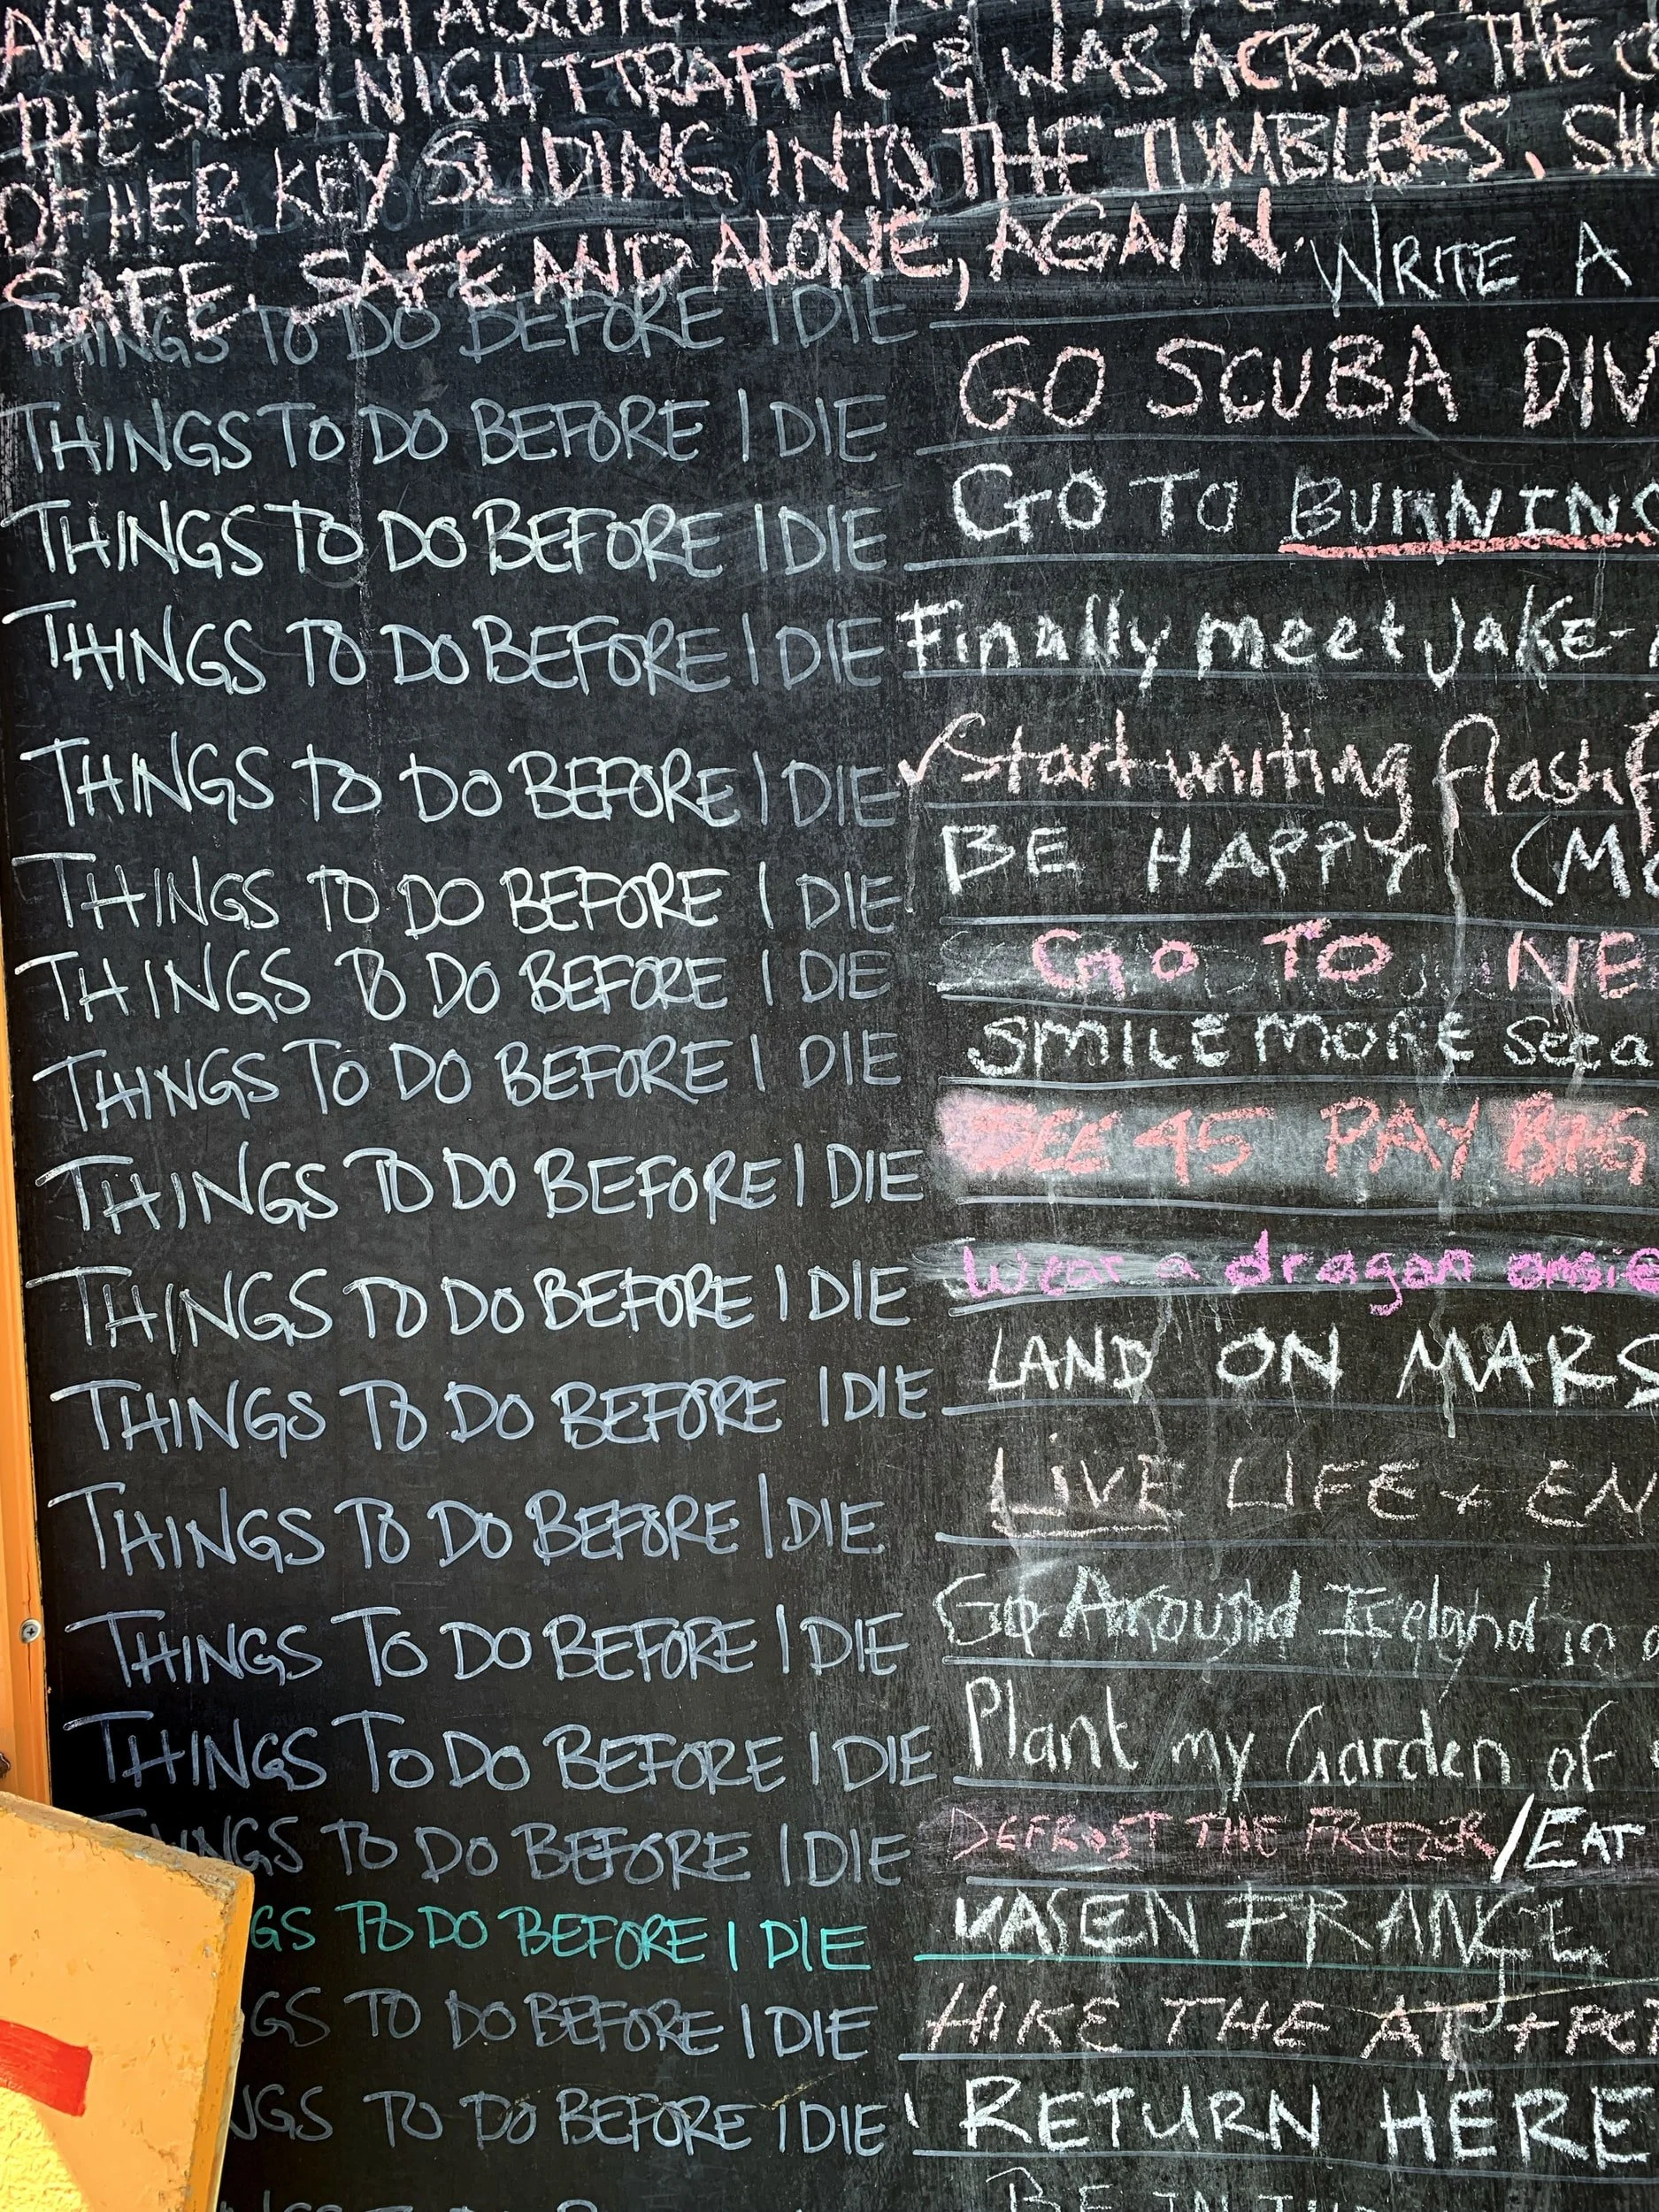 AWAY. WITH
THE SLOW NIGHT TRAFFIC & WAS ACROSS. THE
OF HER KEY SLIDING INTO THE TUMBLERS.
SAFE. SAFE AND ALONE, AGAIN.
THINGS TO DO BEFORE I DIE WRITE A
THINGS TO DO BEFORE I DIE GO SCUBA DIV
THINGS TO DO BEFORE I DIE GO TO BURNING
THINGS TO DO BEFORE I DIE Finally meet Jake-
THINGS TO DO BEFORE I DIE ✓ Start writing flash f
THINGS TO DO BEFORE I DIE BE HAPPY (MO
THINGS TO DO BEFORE I DIE GO TO NE
THINGS TO DO BEFORE I DIE SMILE MORE
THINGS TO DO BEFORE I DIE SEE 45 PAY BIG
THINGS TO DO BEFORE I DIE Wear a dragon onsie
THINGS TO DO BEFORE I DIE LAND ON MARS
THINGS TO DO BEFORE I DIE LIVE LIFE + EN
THINGS TO DO BEFORE I DIE Go Around Iceland in a
THINGS TO DO BEFORE I DIE Plant my Garden of
INGS TO DO BEFORE I DIE DEFROST THE FREEZER / EAT
GS TO DO BEFORE I DIE VASEN FRANCE
GS TO DO BEFORE I DIE HIKE THE AT + PC
NGS TO DO BEFORE I DIE RETURN HERE
BE IN